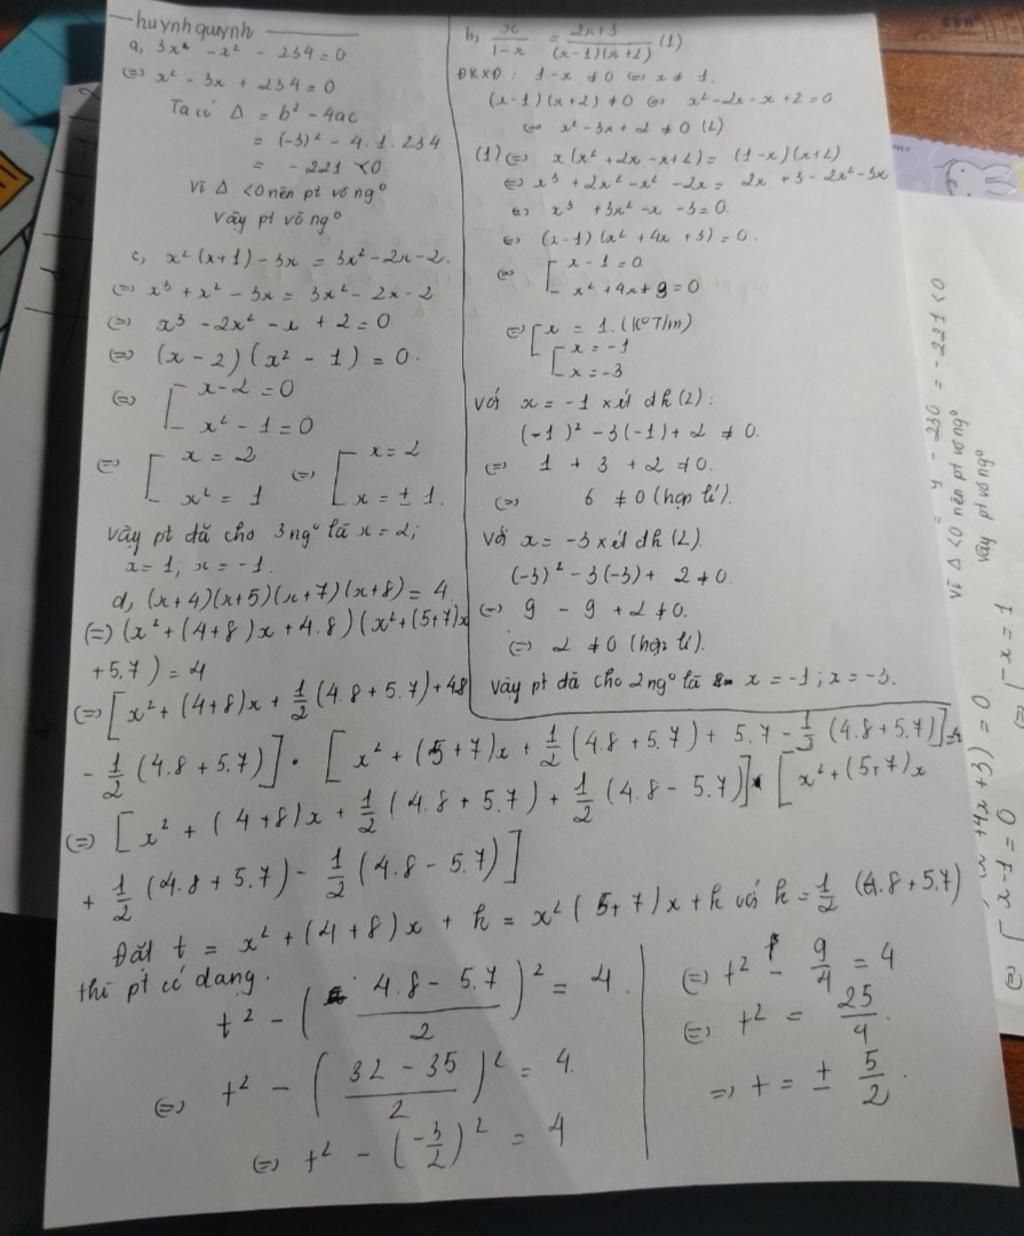 huynhquynh
a, 3x² - x² - 234 = 0
(=) x² - 3x + 234 = 0
Ta có Δ = b² - 4ac
= (-3)² - 4.1.234
= - 221 < 0
Vì Δ < 0 nên pt vô ng°
Vậy pt vô ng°
c, x² (x+1) - 3x = 3x² - 2x - 2.
(=) x³ + x² - 3x = 3x² - 2x - 2
(=) x³ - 2x² - x + 2 = 0
(=) (x - 2) (x² - 1) = 0.
(=) [ x - 2 = 0
x² - 1 = 0
(=) [ x = 2 (=) [ x = 2
x² = 1 x = ± 1.
Vậy pt đã cho 3 ng° là x = 2;
x = 1; x = -1.
d, (x+4)(x+5)(x+7)(x+8) = 4
(=) (x² + (4+8)x + 4.8) (x² + (5+7)x
+ 5.7) = 4
b, x/(1-x) = (2x+3)/((x-1)(x+2)) (1)
ĐKXĐ: 1-x ≠ 0 (=) x ≠ 1.
(x-1)(x+2) ≠ 0 (=) x² - 2x - x + 2 = 0
(=) x² - 3x + 2 ≠ 0 (2)
(1) (=) x(x² + 2x - x + 2) = (1-x)(x+2)
(=) x³ + 2x² - x² - 2x = 2x + 3 - 2x² - 3x
(=) x³ + 3x² - x - 3 = 0.
(=) (x-1) (x² + 4x + 3) = 0.
(=) [ x - 1 = 0
x² + 4x + 3 = 0
(=) [ x = 1. (K° T/m)
[ x = -1
x = -3
Với x = -1 xét đk (2):
(-1)² - 3(-1) + 2 ≠ 0.
(=) 1 + 3 + 2 ≠ 0.
(=) 6 ≠ 0 (hợp lí).
Với x = -3 xét đk (2).
(-3)² - 3(-3) + 2 ≠ 0.
(=) 9 - 9 + 2 ≠ 0.
(=) 2 ≠ 0 (hợp lí).
Vậy pt đã cho 2 ng° là x = -1; x = -3.
(=) [x² + (4+8)x + 1/2 (4.8 + 5.7) + 48
- 1/2 (4.8 + 5.7)] . [x² + (5+7)x + 1/2 (4.8 + 5.7) + 5.7 - 1/3 (4.8 + 5.7)]
(=) [x² + (4+8)x + 1/2 (4.8 + 5.7) + 1/2 (4.8 - 5.7)] . [x² + (5+7)x
+ 1/2 (4.8 + 5.7) - 1/2 (4.8 - 5.7)]
Đặt t = x² + (4+8)x + k = x² (5+7)x + k với k = 1/2 (4.8 + 5.7)
thì pt có dạng.
t² - ((4.8 - 5.7)/2)² = 4.
(=) t² - ((32 - 35)/2)² = 4.
(=) t² - (-3/2)² = 4
(=) t² - 9/4 = 4
(=) t² = 25/4.
=> t = ± 5/2.
= y - 230 = -221 < 0
Vì Δ < 0 nên pt vô ng°
Vậy pt vô ng°
+4x+3) = 0.
(=) [ x - 1 = 0 (=) [ x = 1